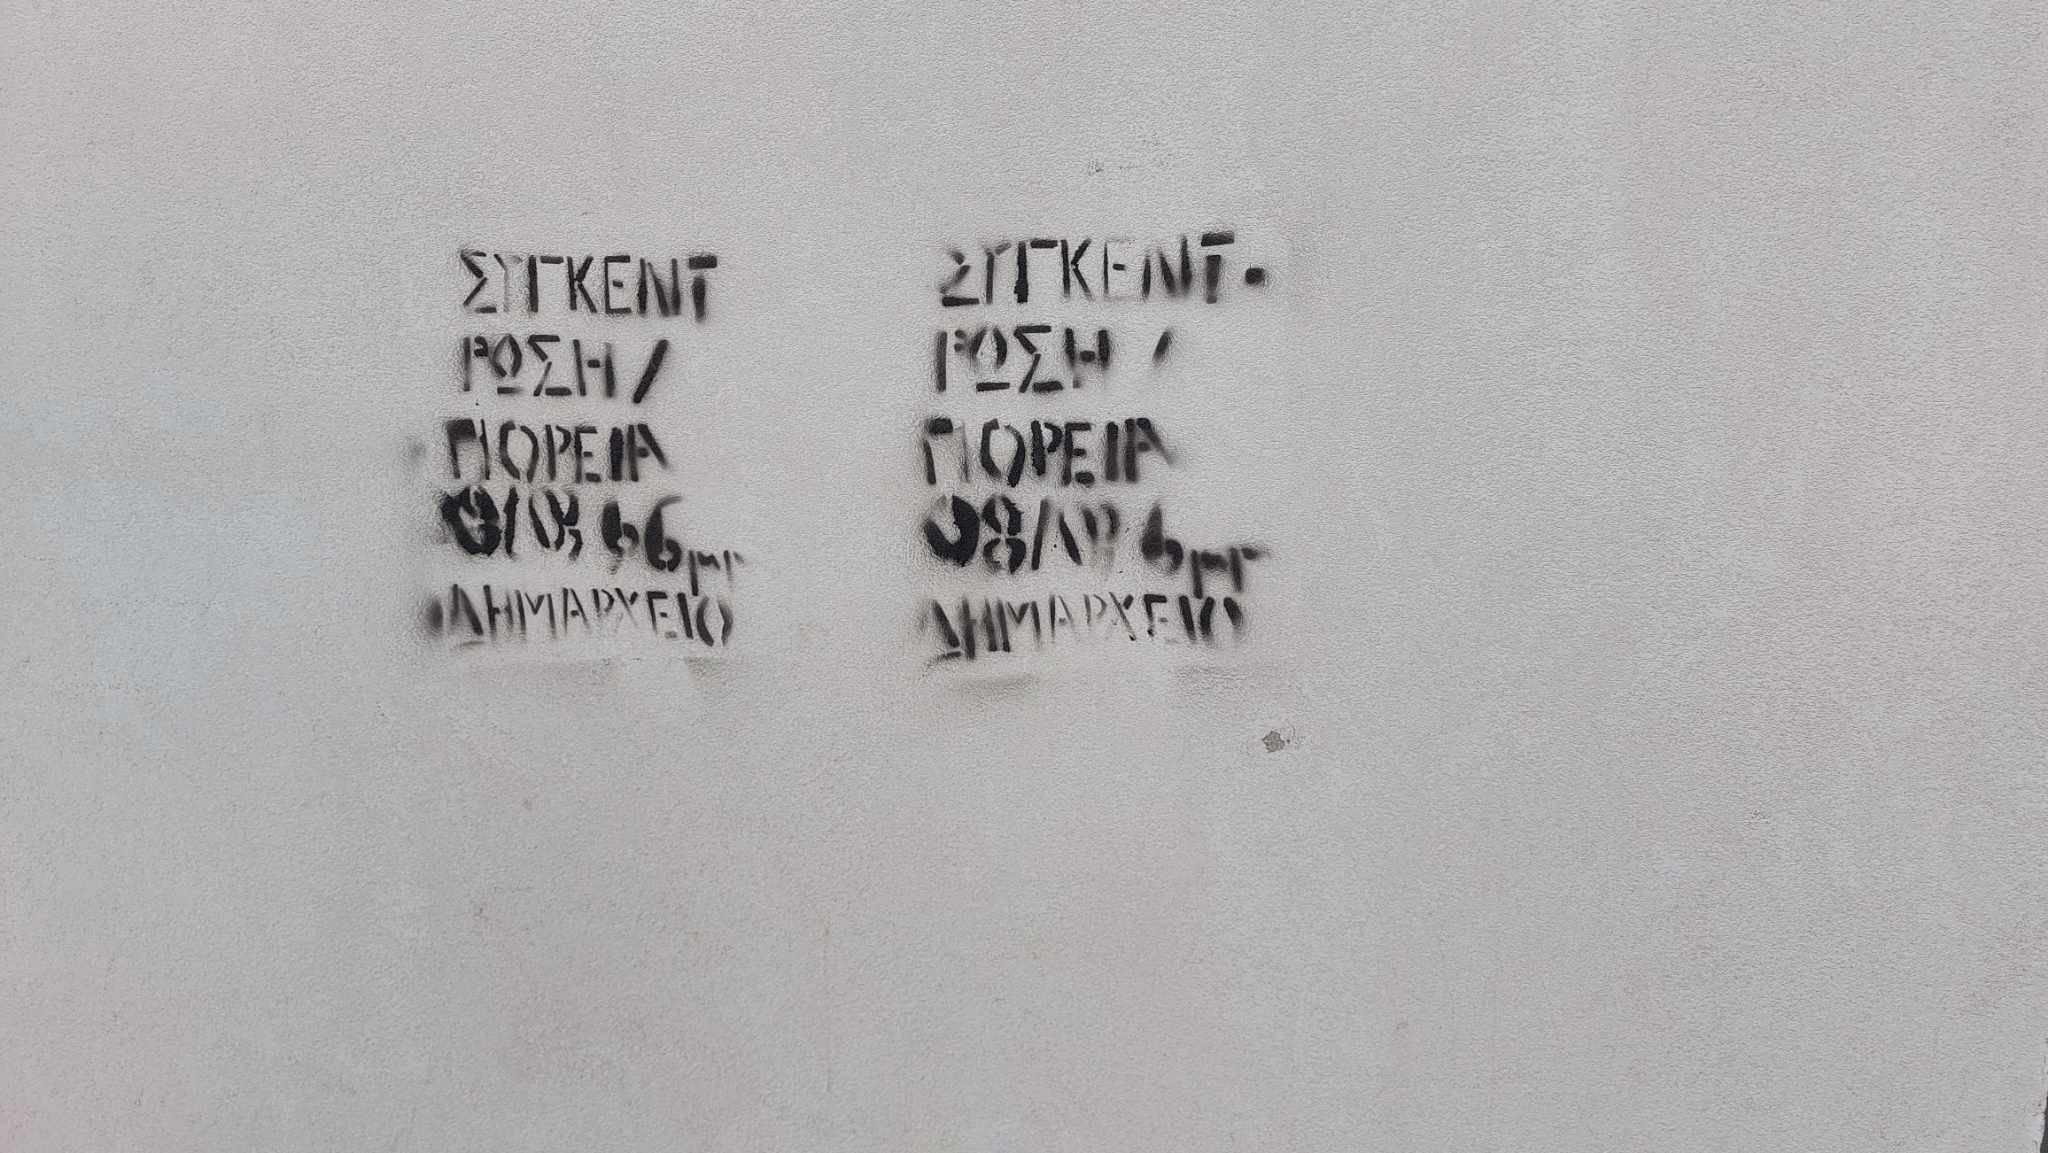 ΣΥΓΚΕΝΤ
ΡΩΣΗ /
ΠΟΡΕΙΑ
6μμ
ΔΗΜΑΡΧΕΙΟ
ΣΥΓΚΕΝΤ.
ΡΩΣΗ /
ΠΟΡΕΙΑ
08/ 6μμ
ΔΗΜΑΡΧΕΙΟ